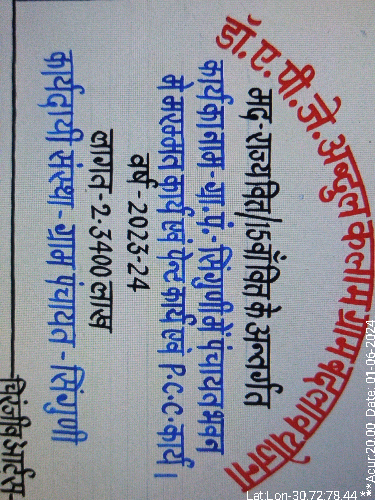 डॉ.ए.पी.जे.अब्दुल कलाम ग्राम बदलाव योजना
मद-राज्यवित्त/15वाँवित्त के अन्तर्गत
कार्य का नाम-ग्रा.पं.-सिंगुणी में पंचायत भवन
में मरम्मत कार्य एवं पेन्ट कार्य एवं P.C.C-कार्य।
वर्ष-2023-24
लागत-2.3400लाख
कार्यदायी संस्था-ग्राम पंचायत-सिंगुणी
चिरंजीव आर्टस
Lat:Lon-30.72:78.44 ***Acur:20.00 Date: 01-06-2024